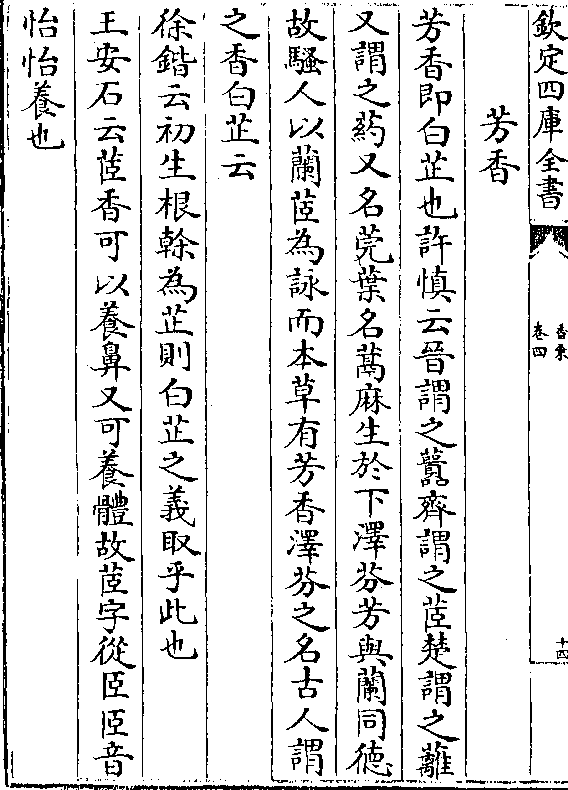 欽定四庫全書
香乘
卷四
十四
芳香
芳香即白芷也許慎云晉謂之虈齊謂之茝楚謂之蘺
又謂之葯又名莞葉名蒚麻生於下澤芬芳與蘭同德
故騷人以蘭茝為詠而本草有芳香澤芬之名古人謂
之香白芷云
徐鍇云初生根榦為芷則白芷之義取乎此也
王安石云茝香可以養鼻又可養體故茝字從𦣞𦣞音
怡怡養也